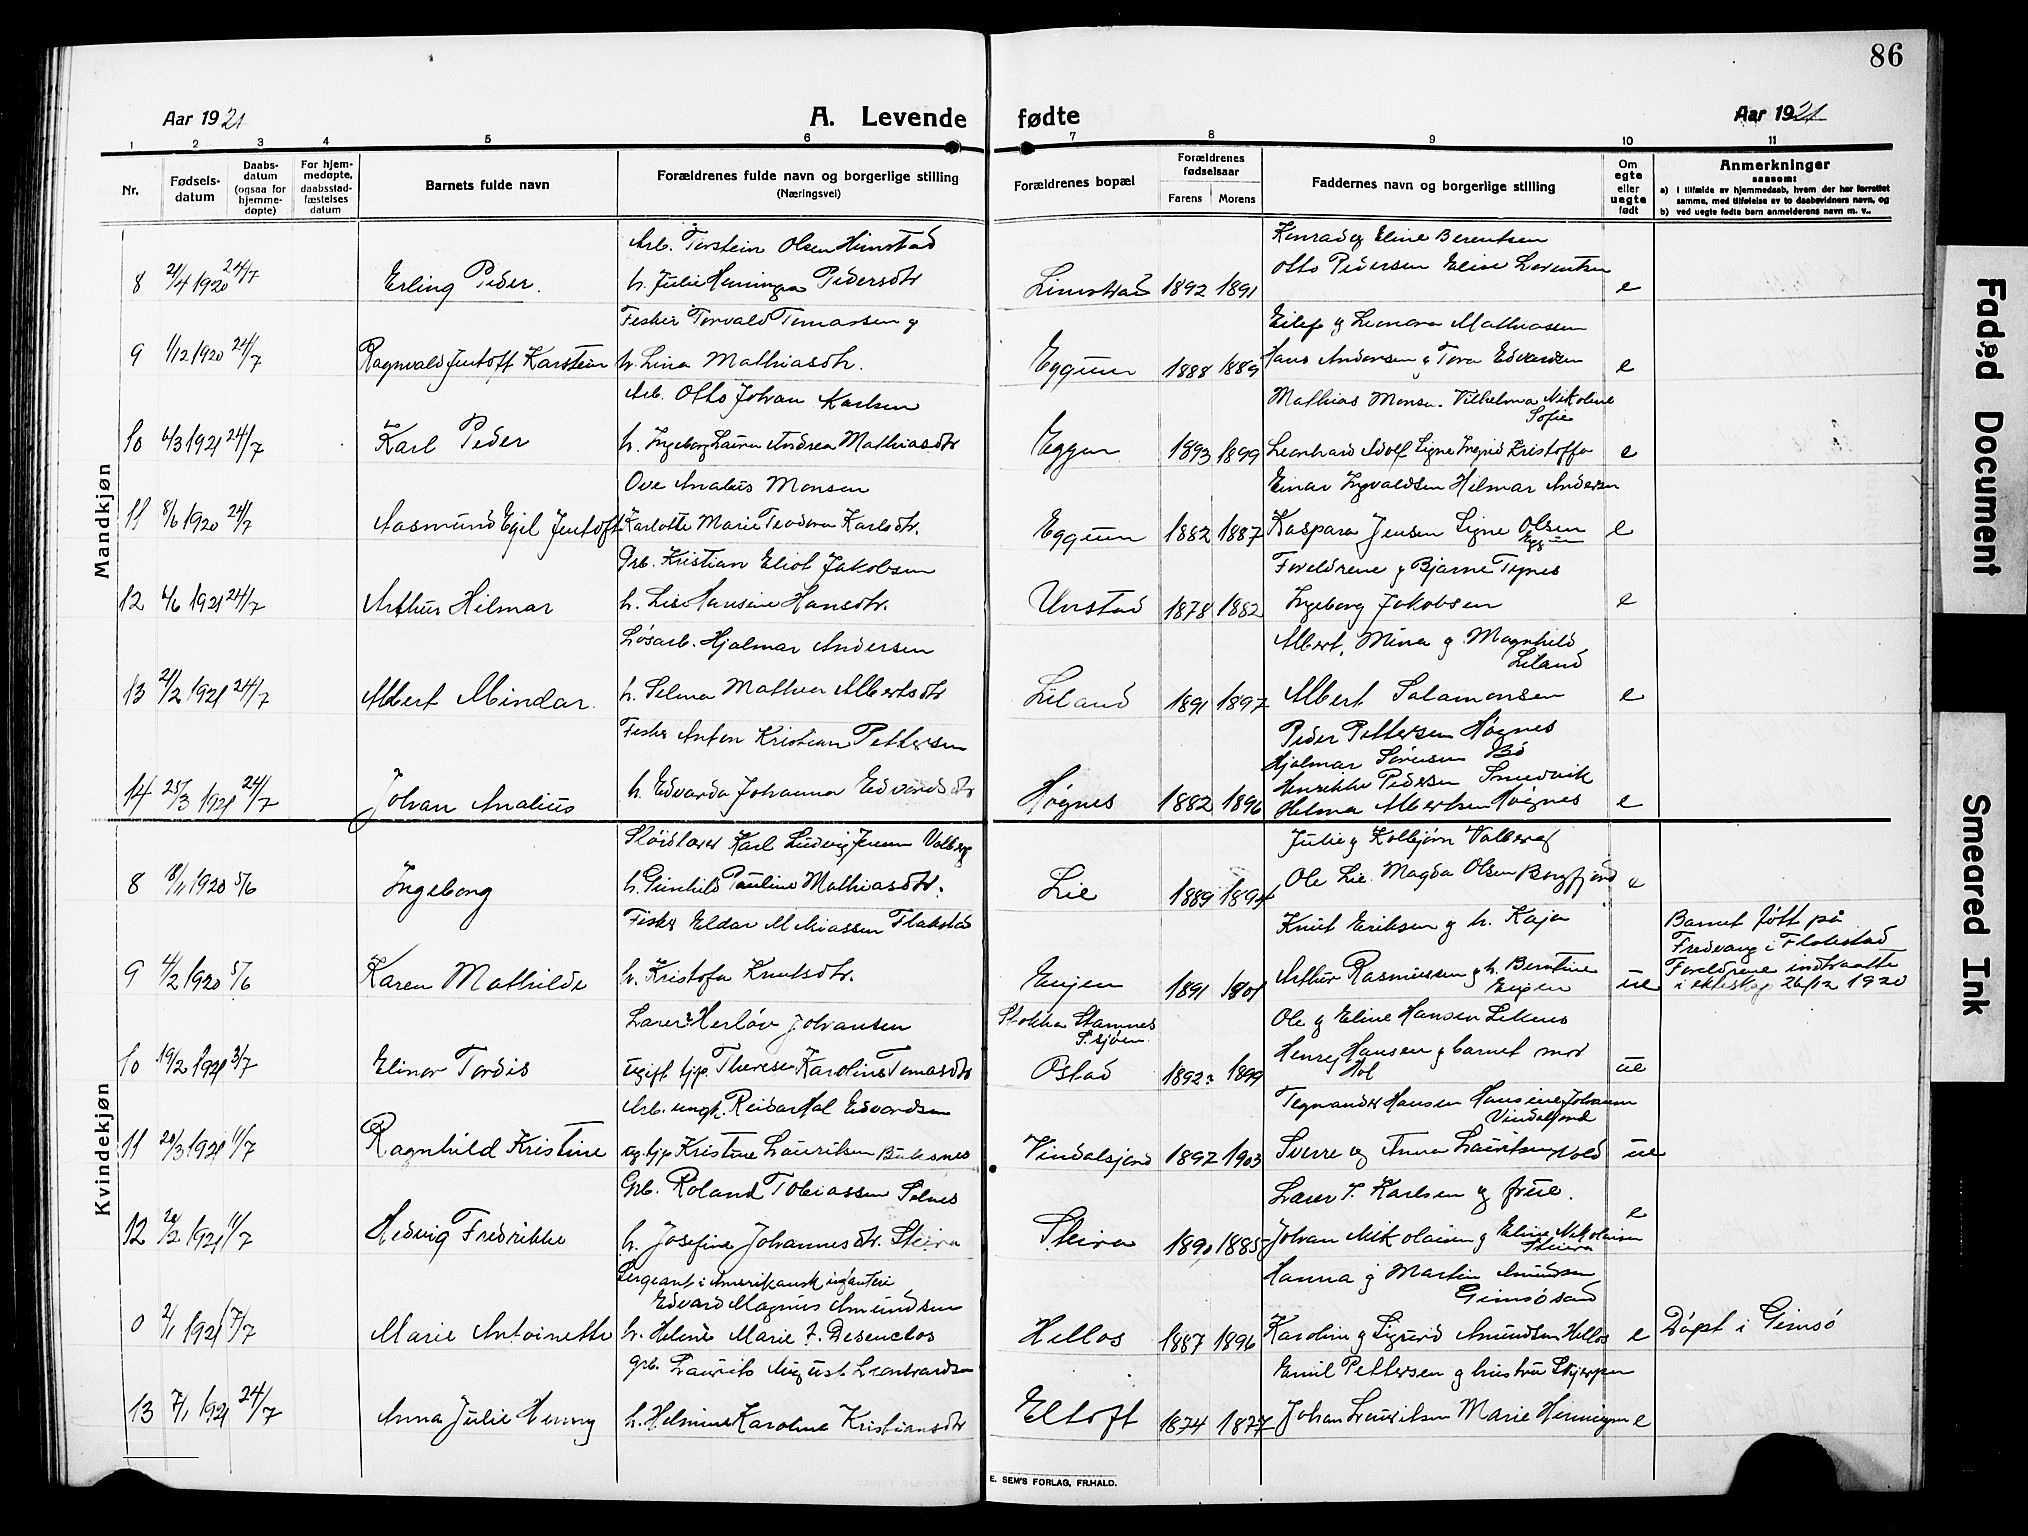 86
Aar 1921
A. Levende fødte
Aar 1921
1 2 3 4 5 6 7 8 9 10 11
Nr.
Fødsels-
datum
Daabs-
datum
(ogsaa for
hjemme-
døpte)
For hjem-
medøpte,
daabsstad-
fæstelses
datum
Barnets fulde navn
Forældrenes fulde navn og borgerlige stilling
(Næringsvei)
Forældrenes bopæl
Forældrenes
fødselsaar
Farens Morens
Faddernes navn og borgerlige stilling
Om
egte
eller
uegte
født
Anmerkninger
saasom:
a) i tilfælde av hjemmedaab, hvem der har forrettet
samme, med tilføielse av to daabsvidners navn, og
b) ved uegte fødte barn anmelderens navn m. v..
Mandkjøn
Arb. Torstein Olsen Himstad
Konrad og Eline Berentsen
8 21/4 1920 24/7 Erling Peder. h. Julie Henninga Pedersdtr Limstrad 1892 1891 Otto Pedersen Elise Lorentsen e
Fisker Torvald Tomassen g
Eilef g Leonora Mathiassen
9 1/12 1920 24/7 Ragnvald Jentoft Karstein h. Lina Mathiasdtr. Eggum 1888 1889 Hans Andersen g Tora Edvardsen e
Arb. Otto Johan Karlsen
Mathias Monsen. Vilhelma Nikoline
Sofie
10 6/3 1921 24/7 Karl Peder h. Ingeborg Laura Andrea Mathiasdtr Eggum 1893 1899 Leonhard Adolf Signe Ingrid Kristoffe e
Ove Analius Monsen
Einar Ingvaldsen Hilmar Andersen
11 8/6 1920 24/7 Aasmund Egil Jentoft Karlotte Marie Teodora Karlsdtr. Eggum 1882 1887 Kaspara Jensen Signe Olsen e
Eggum
Grb. Kristian Eliot Jakobsen
Foreldrene g Bjarne Tynes
12 4/6 1921 24/7 Arthur Hilmar h. Lise Hansine Hansdtr. Unstad 1878 1882 Ingeborg Jakobsen e
Løsarb. Hjalmar Andersen
Albert, Mina g Magnhild
Liland
13 21/2 1921 24/7 Albert Mindar. h. Selma Mathea Albertsdtr Liland 1891 1897 Albert Salamonsen e
Fisker Anton Kristian Pettersen
Peder Pettersen Høgnes
Hjalmar Sørensen Bø
Henrikke Pedersen Smedvik
14 25/3 1921 24/7 Johan Analius h. Edvarda Johanna Edvardsdtr Høgnes 1882 1896 Helma Albertsen Høgnes e
Kvindekjøn
Sløidlærer Karl Ludvig Jensen Valberg
Julie g Kolbjørn Valberg
8 18/11 1920 5/6 Ingeborg h. Gunhild Pauline Mathiasdtr. Lie 1889 1894 Ole Lie. Magda Olsen Borgfjord e
Fisker Eldar M. Kiassen Flakstad
Knut Eriksen g h. Kaja
Barnet født på
Fredvang i Flakstad
Foreldrene indtraatte
i ekteskap 26/12 1920
9 4/2 1920 5/6 Karen Mathilde h. Kristofa Knutsdtr. Engen 1891 1901 Arthur Rasmussen g h. Berntine ue
Engen
Lærer Herløv Johansen
Stokka Stamnes
S. sjøen.
Ole g Eline Hansen Leknes
10 19/2 1921 3/7 Elinor Tordis ugift tjp. Therese Karoline Tomasdtr Ostad 1892? 1899 Henry Hansen g barnets mor ue
Hol
Arb. ungk. Reidar Hol Edvardsen
Tegnander Hansen Hansine Johansen
Vindalsjord
11 20/3 1921 11/7 Ragnhild Kristine ug. tjp Kristine Lauritsen Buksnes Vindalsjord 1897 1903 Sverre og Anna Lauritsen Vold ue
Grb. Roland Tobiassen Selnes
Lærer T. Karlsen g frue.
12 20/2 1921 11/7 Hedvig Fredrikke h. Josefine Johannesdtr. Steira Steira 1890 1885 Johan Nikolaisen g Eline Nikolaisen e
Steira
Sergeant i Amerikansk infanteri
Edvard Magnus Amundsen
Hanna g Martin Amundsen
Gimsøsand
0 2/1 1921 17/7 Marie Antoinette h. Helene Marie F. Desenclos Hellos 1887 1896 Karoline g Sigurd Amundsen Hellos e Døpt i Gimsø
Grb. Laurits August Leonhardsen
Emil Pettersen g hustru Skjerpen
13 7/1 1921 24/7 Anna Julie Henny h. Helmine Karoline Kristiansdtr Eltoft 1874 1877 Johan Lauritsen Marie Henningsen e
E. SEM'S FORLAG, FR.HALD.
Faded Document
Smeared Ink